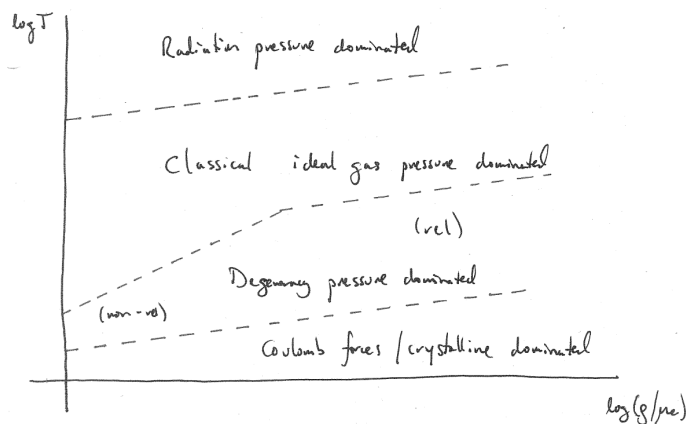 log T
Radiation pressure dominated
Classical ideal gas pressure dominated
(rel)
Degeneracy pressure dominated
(non-rel)
Coulomb forces / crystalline dominated
log(ρ/μe)